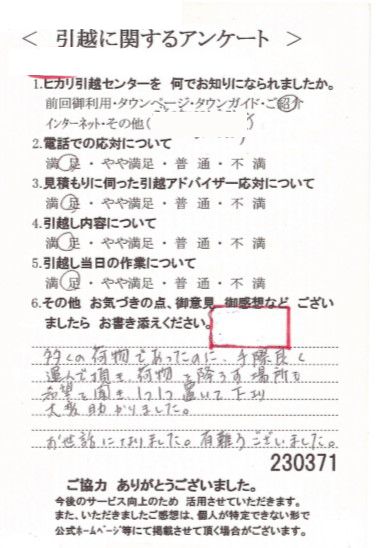 < 引越に関するアンケート >
1.ヒカリ引越センターを 何でお知りになられましたか。
前回御利用・タウンページ・タウンガイド・ご紹介
インターネット・その他( )
2.電話での応対について
満 足・やや満足・普 通・不 満
3.見積もりに伺った引越アドバイザー応対について
満 足・やや満足・普 通・不 満
4.引越し内容について
満 足・やや満足・普 通・不 満
5.引越し当日の作業について
満 足・やや満足・普 通・不 満
6.その他 お気づきの点、御意見 御感想など ござい
ましたら お書き添えください。
多くの荷物であったのに、手際良く
運んで頂き、荷物を降ろす場所も
希望を聞き、1つ1つ置いて下り
大変助かりました。
お世話になりました。有難うございました。
230371
ご協力 ありがとうございました。
今後のサービス向上のため 活用させていただきます。
また、いただきましたご感想は、個人が特定できない形で
公式ホームページ等にて掲載させて頂く場合がございます。